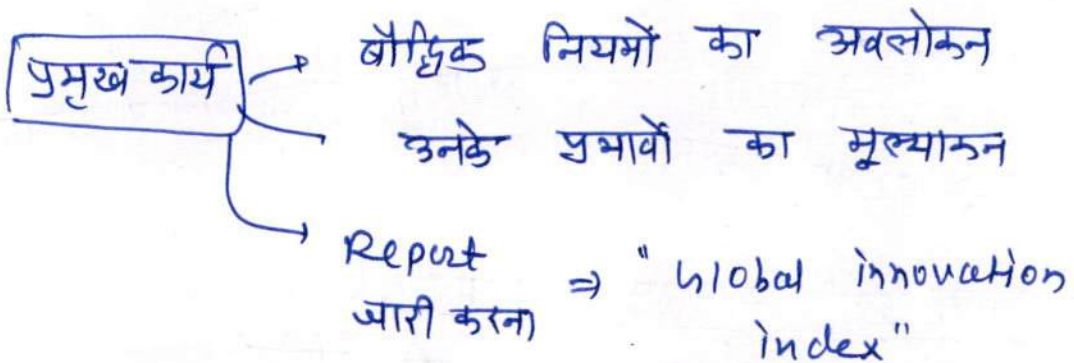 प्रमुख कार्य → बौद्धिक नियमों का अवलोकन
उनके प्रभावों का मूल्याकन
→ Report ⇒ "Global innovation
जारी करना index"